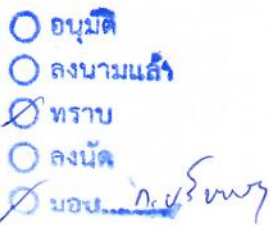 อนุมัติ
ลงนามแล้ว
ทราบ
ลงนัด
มอบ